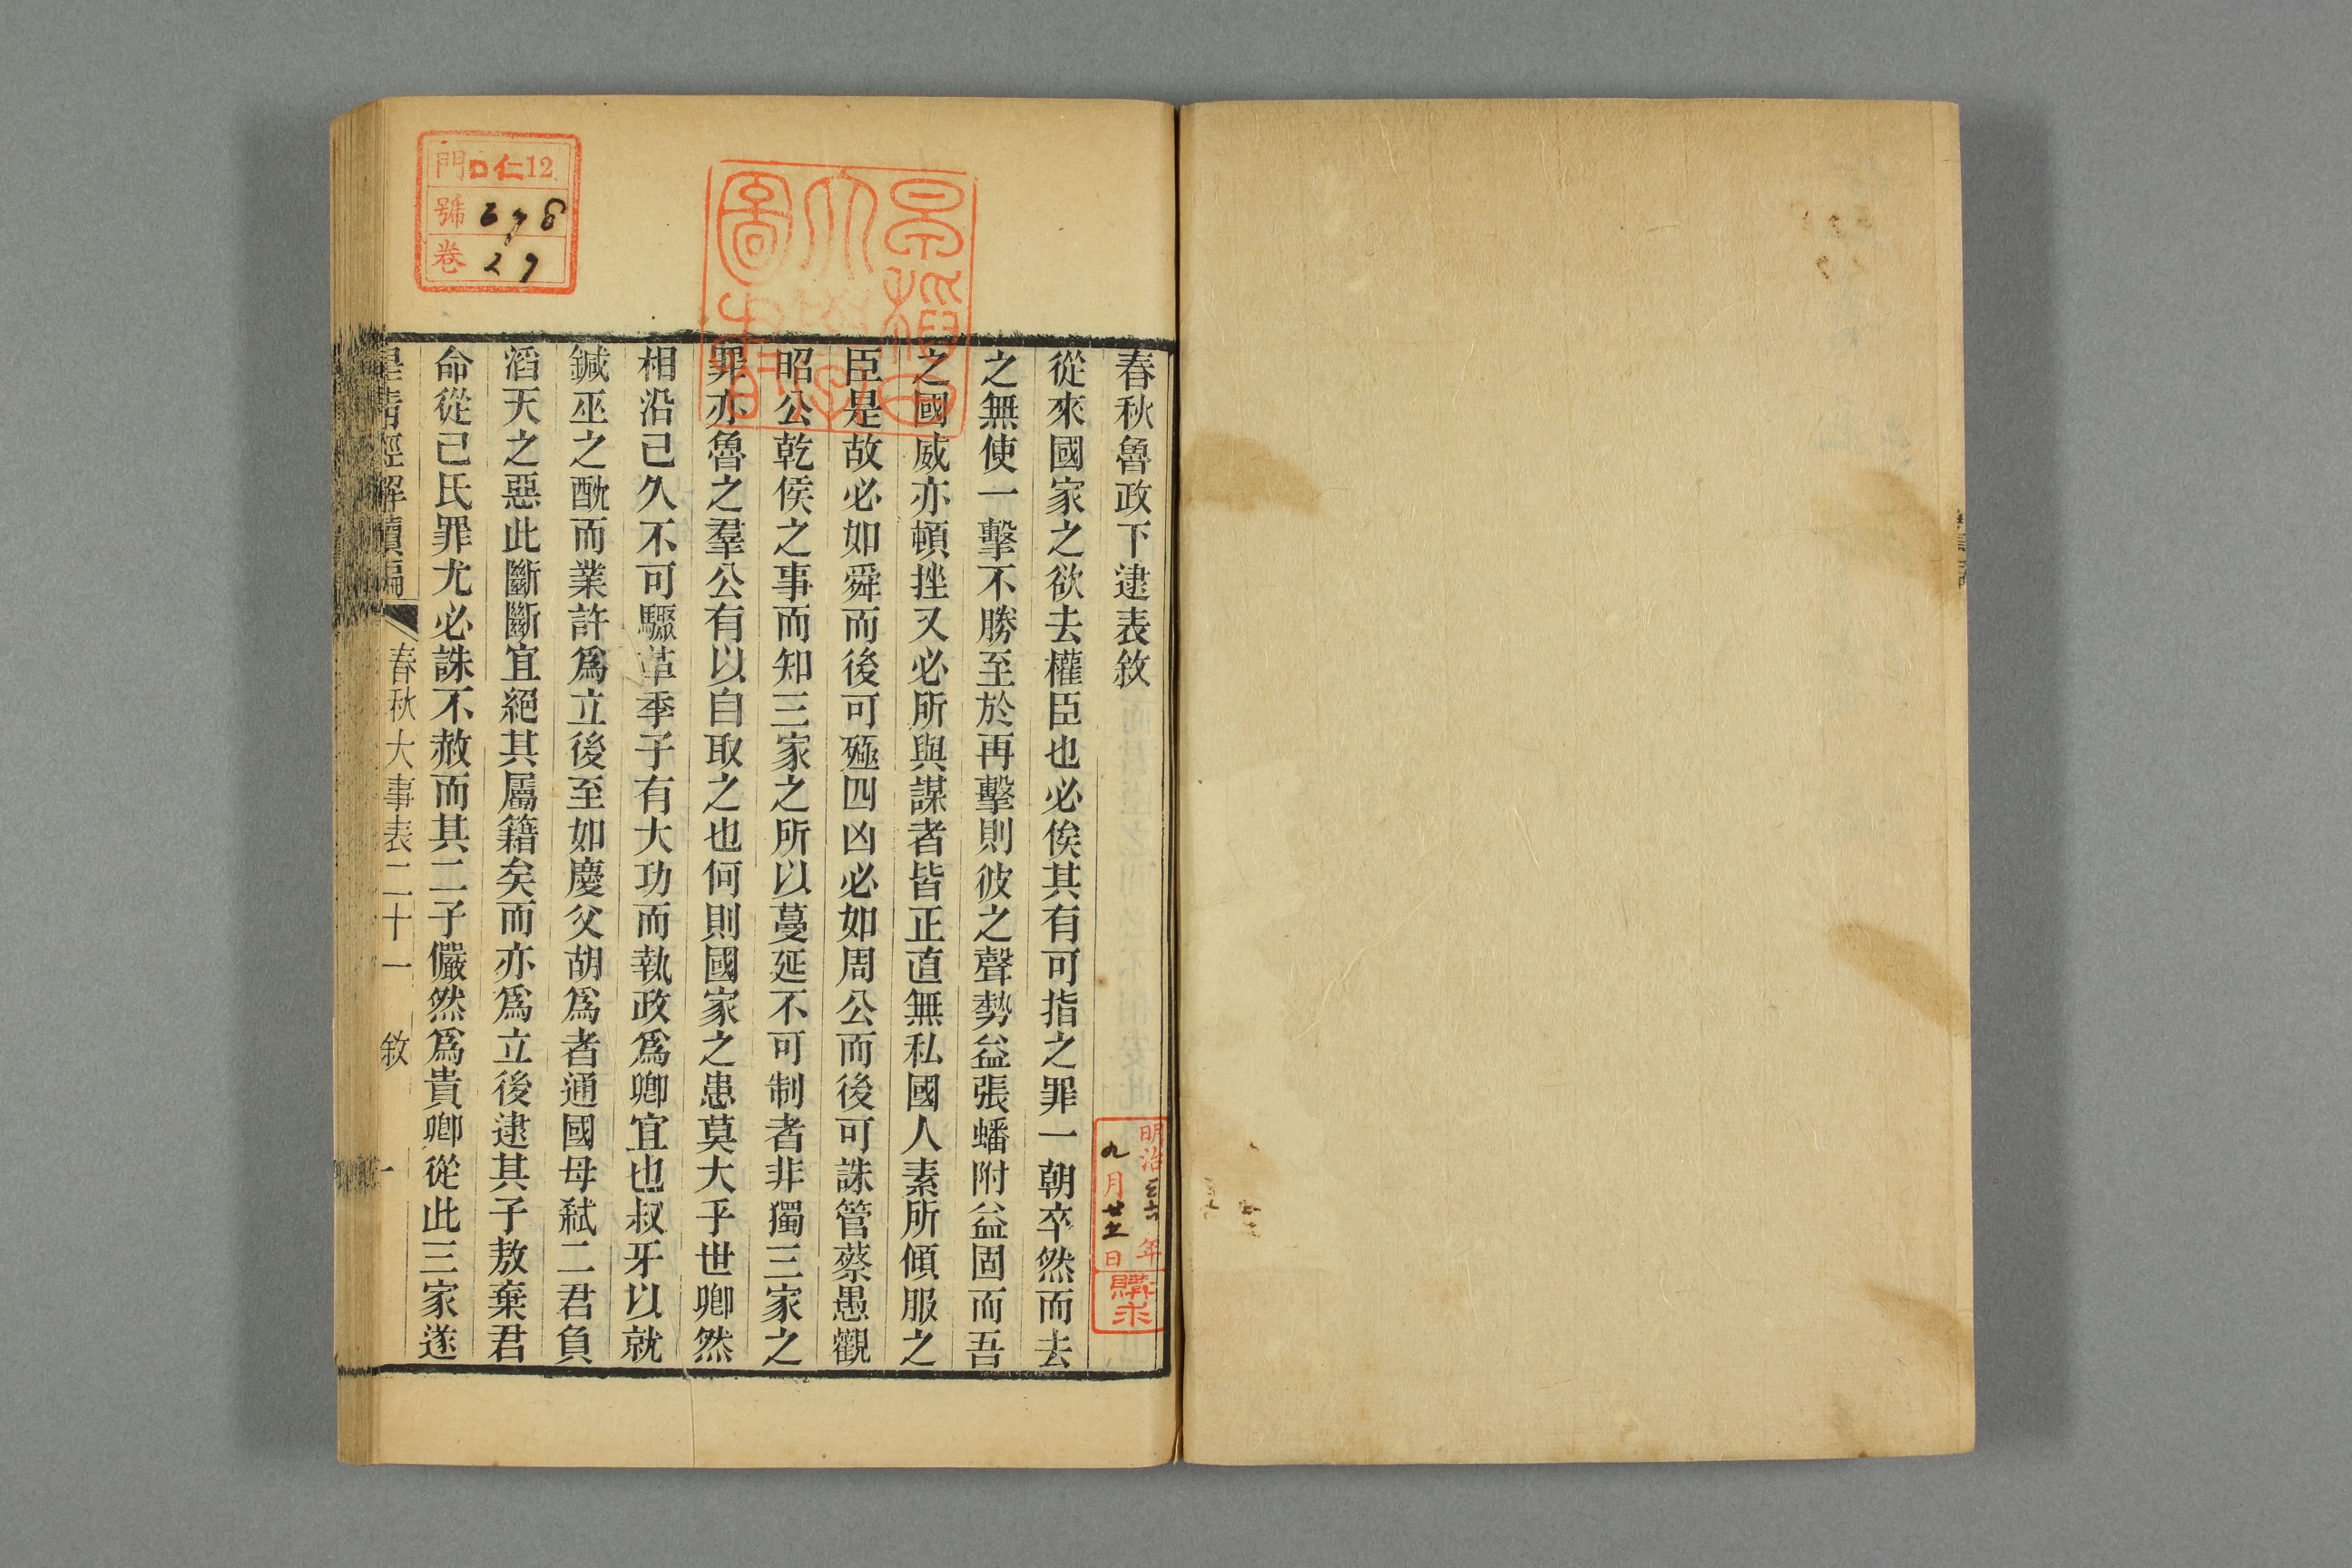 春秋魯政下逮表敘
從來國家之欲去權臣也必俟其有可指之罪一朝卒然而去
之無使一擊不勝至於再擊則彼之聲勢益張蟠附益固而吾
之國威亦頓挫又必所與謀者皆正直無私國人素所傾服之
臣是故必如舜而後可殛四凶必如周公而後可誅管蔡愚觀
昭公乾侯之事而知三家之所以蔓延不可制者非獨三家之
罪亦魯之羣公有以自取之也何則國家之患莫大乎世卿然
相沿已久不可驟革季子有大功而執政爲卿宜也叔牙以就
鍼巫之酖而業許爲立後至如慶父胡爲者通國母弒二君負
滔天之惡此斷斷宜絕其屬籍矣而亦爲立後逮其子敖棄君
命從己氏罪尤必誅不赦而其二子儼然爲貴卿從此三家遂
皇清經解續編 春秋大事表二十一 敘 一
早稻田
大學
圖書
門 ロ仁12
號 678
卷 29
明治 年
九月廿五日
購求